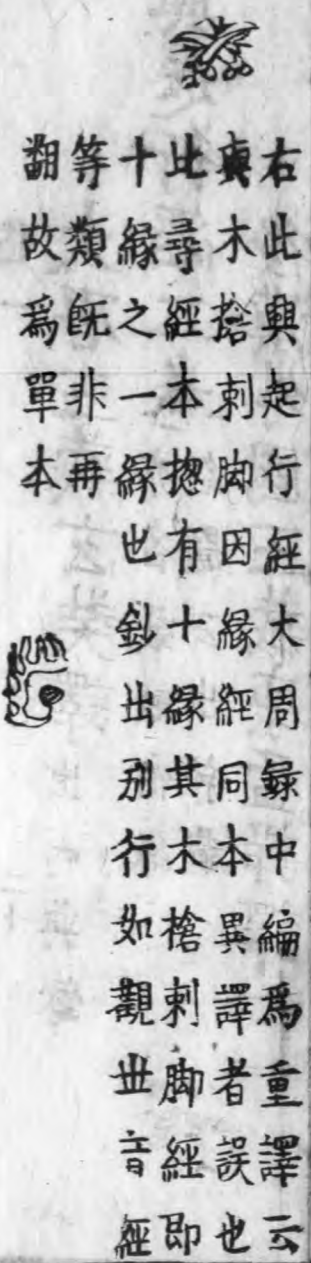 右此興起行經大周錄中編爲重譯云
與木搶刺脚因緣經同本異譯者誤也
此尋經本揔有十緣其木槍刺脚經即
十緣之一緣也鈔出別行如觀世音經
等類旣非再
翻故爲單本